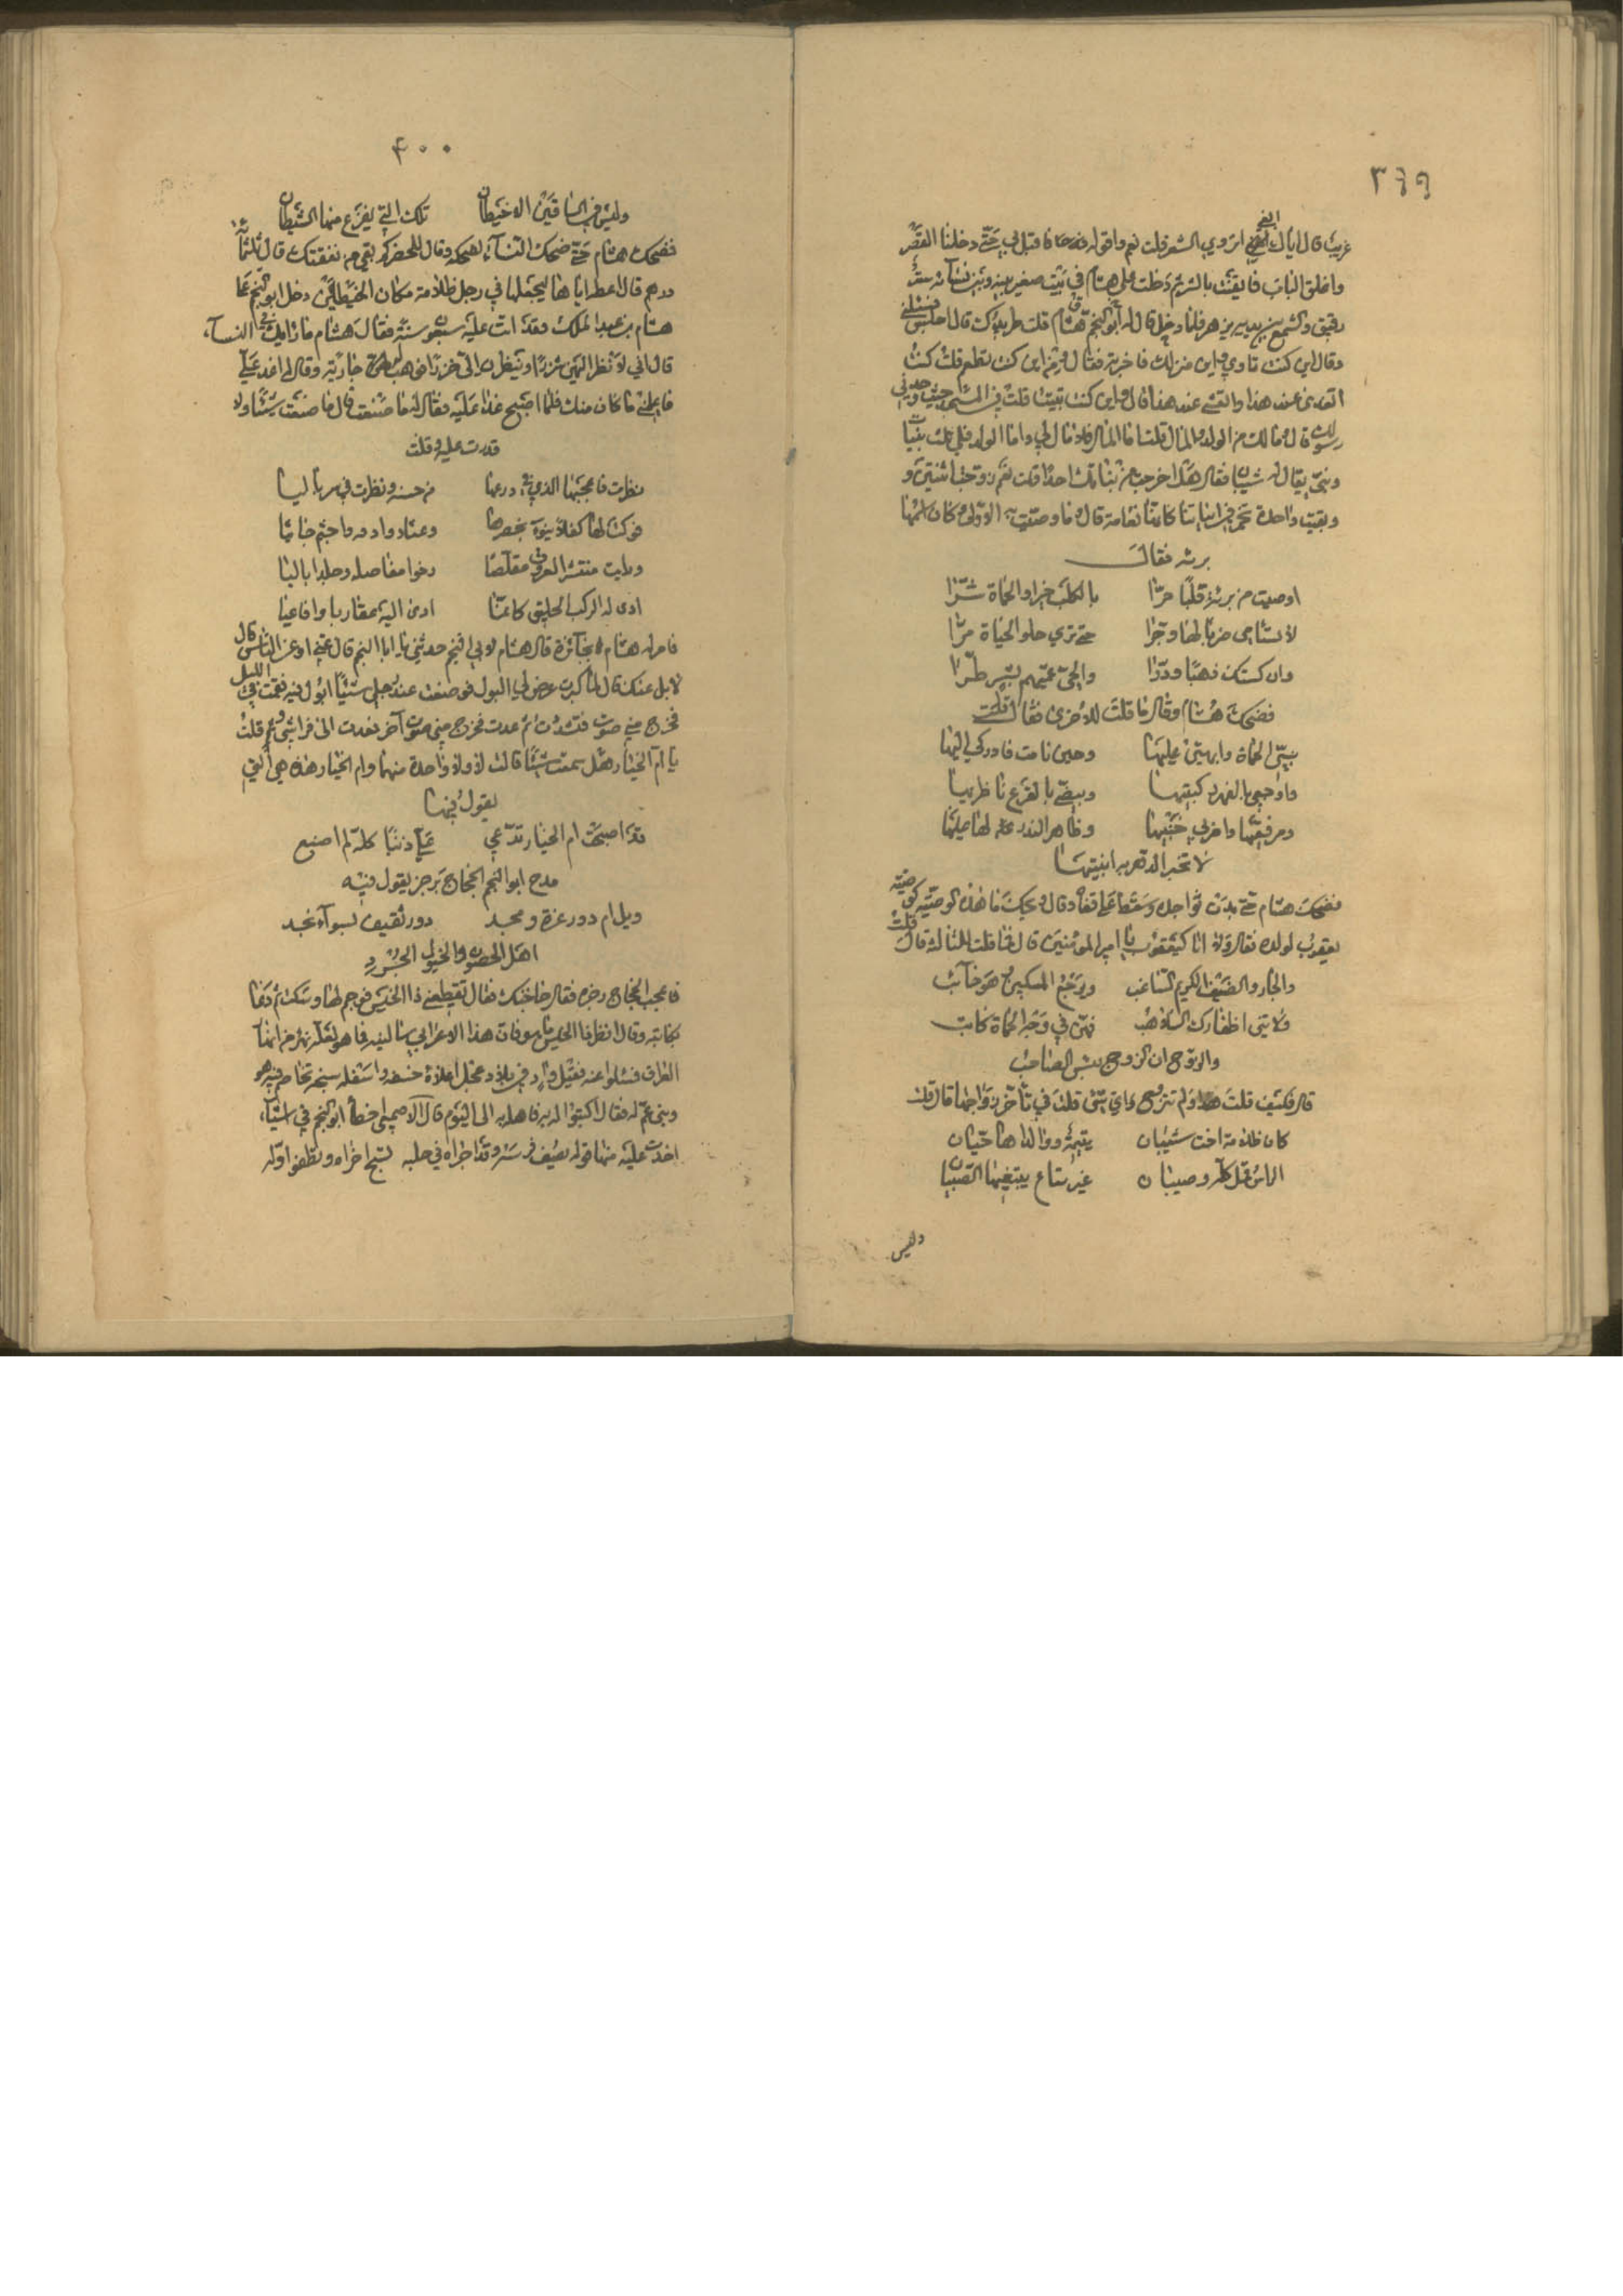 ٣٩٩
غريبا قال اياك ابغي اتروي الشعر قلت نعم واقوله فدعانا فاقبل بي حتى دخلنا القصر
واغلق الباب فايقنت بالشر ثم دخلت على هشام في بيت صغير بينه وبين نسائه ستر
رقيق والشمع بين يديه يزهر فلما دخل قال له ابو النجم قال هشام قلت طريدك قال اجلس فسئلني
وقال اين كنت تاوي واين منزلك فاخبرته فقال ومن اين كنت تطعم قلت كنت
اتغدى عند هذا واتعشى عند هذا قال واين كنت تبيت قلت في المسجد حيث وجدني
رسولك قال ومالك من الولد والمال قلت اما المال فلا مال لي واما الولد فلي ثلث بنيات
وبنيّ يقال له شيبان فقال هل اخرجت من بناتك احدا قلت نعم زوجت اثنتين و
وبقيت واحدة تجمز في ابياتنا كانها نعامة قال وما وصيت به الاولى وكان اسمها
برة فقال
اوصيت من برة قلبا حرّا بالكلب خيرا والحماة شرّا
لا تسئامى ضربا لها وجرّا حتى تري حلو الحياة مرّا
وان كستك ذهبا ودرّا والحي عمّيهم بشرّ طرّا
فضحك هشام وقال ما قلت للاخرى فقال قلت
سبّي الحماة وابهتي عليها وحين نامت فادركي اليها
واوجعي بالفهر ركبتيها
ومرفقيها واضربي جنبيها وظاهر النذر عليه لها عليها
لا تخبر الدهر به ابنتيها
فضحك هشام حتى بدت نواجده وسقط على قفاه وقال ويحك ما هذه الوصية كوصية
يعقوب لولده فقال ولا انا كيعقوب يا امير المؤمنين قال فما قلت للثالثة قال قلت
والجار والضيف الكريم الساغب ويرجع المسكين وهو خائب
ولا تني اظفارك السلاهب فهن في وجه الحماة كاتب
والزوج ان الزوج بئس الصاحب
قال فكيف قلت هذا ولم تتزوج واي شيء قلت في تأخر زواجها قال قلت
كان ظلامة اخت شيبان يتيمة ووالداها حيّان
الراس قمل كله وصيبان
وليس
٤٠٠
وليس في الساقين الا خيطان تلك التي يفزع منها الشيطان
فضحك هشام حتى ضحك النساء لضحكه وقال للحضر كم بقي من نفقتك قال ثلثمائة
درهم قال اعطه اياها ليجعلها في رجل ظلامة مكان الخيطين دخل ابو النجم على
هشام بن عبد الملك وقد اتت عليه سبعون سنة فقال هشام ما رايك في النساء
قال اني لا نظر اليهن شزرا وينظرن الى خزرا فوهب له جارية وقال له اغد علي
فاعلمني ما كان منك فلما اصبح غدا عليه فقال له ما صنعت قال ما صنعت شيئا ولا
قدرت عليه وقلت
نظرت فاعجبها الذي في درعها من حسنه ونظرت في سرباليا
فرأت لها كفلا ينوء بخصرها وعثا روادفه واجثم جاثيا
ورايت منتشر العروق مقلصا رخوا مفاصله وجلدا باليا
ادنى له الركب الحليق كانما ادني اليه عقاربا وافاعيا
فامر له هشام بجائزة قال هشام لابي النجم حدثني يا ابا النجم قال عني او عن الناس قال
لا بل عنك قال لما كبرت عرض لي البول فوضعت عند رجلي شيئا ابول فيه فقمت في الليل
فخرج مني صوت فتشددت ثم عدت فخرج مني صوت آخر فعدت الى فراشي وقلت
يا ام الخيار هل سمعت شيئا قالت لا ولا واحدة منهما وام الخيار هذه هي التي
يقول فيها
قد اصبحت ام الخيار تدّعي عليّ ذنبا كله لم اصنع
مدح ابو النجم الحجاج برجز يقول فيه
ويل ام دور عزة ومجد دور ثقيف بسواء نجد
اهل الحصون والخيول الجرد
فاعجب الحجاج رجزه فقال ما حاجتك فقال تقطعني ذا الجنبين فوجم لها وسكت ثم دعا
كاتبه وقال انظر ذا الجنبين ما هو فان هذا الاعرابي سالنيه فما هو لعله نهر من انهار
العراق فسئلوا عنه فقيل واد في بلاد عجل اعلاه حسفة واسفله سبخة تخاصم فيه هو
وبني عم له فقال اكتبوا له به فاهله به الى اليوم قال الاصمعي اخطأ ابو النجم في اشياء
اخذت عليه منها قوله يصف فرسه وقد اجراه في حلبه تسبح اخراه وتطفو اوله